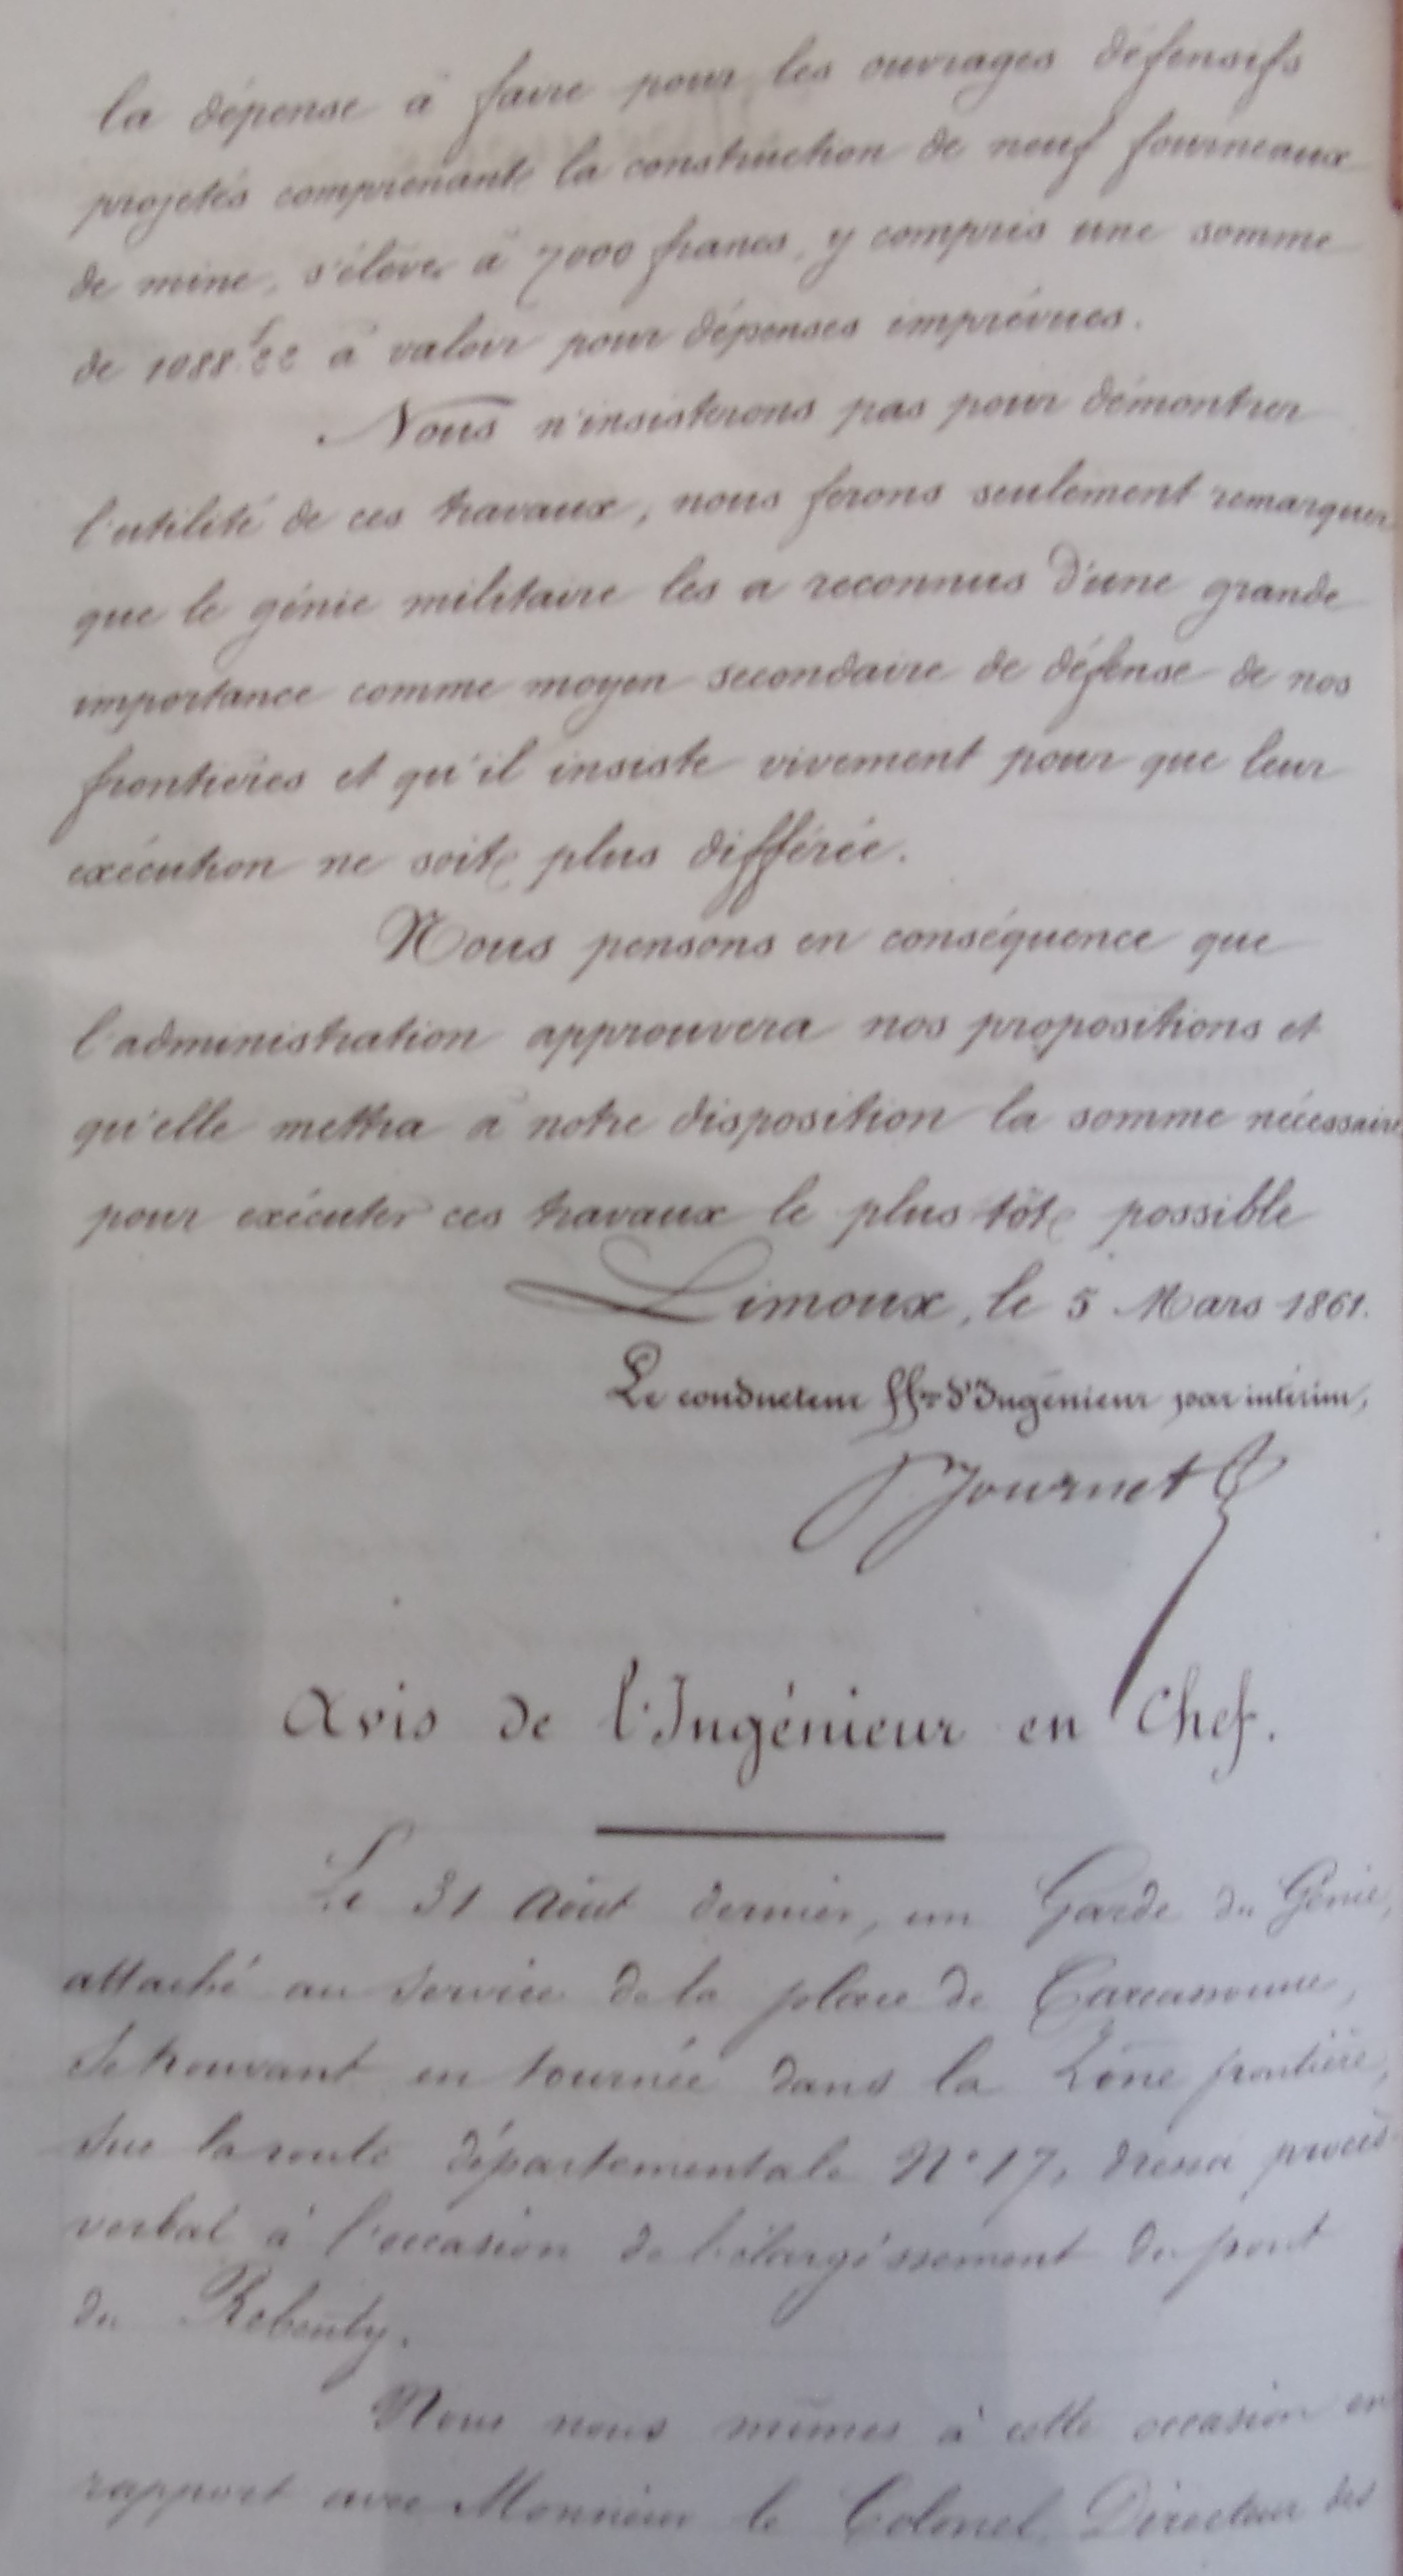 la dépense à faire pour les ouvrages défensifs
projetés comprenant la construction de neuf fourneaux
de mine, s'élève à 7000 francs, y compris une somme
de 1088f.22 à valoir pour dépenses imprévues.
Nous n'insisterons pas pour démontrer
l'utilité de ces travaux, nous ferons seulement remarquer
que le génie militaire les a reconnus d'une grande
importance comme moyen secondaire de défense de nos
frontières et qu'il insiste vivement pour que leur
exécution ne soit plus différée.
Nous pensons en conséquence que
l'administration approuvera nos propositions et
qu'elle mettra à notre disposition la somme nécessaire
pour exécuter ces travaux le plus tôt possible
Limoux, le 5 Mars 1861.
Le conducteur ffon d'Ingénieur par intérim,
Journet
Avis de l'Ingénieur en Chef.
Le 31 Août dernier, un Garde du Génie,
attaché au service de la place de Carcassonne,
se trouvant en tournée dans la Zône frontière,
sur la route départementale N° 17, dressa procès-
verbal à l'occasion de l'élargissement du pont
du Rebenty.
Nous nous mîmes à cette occasion en
rapport avec Monsieur le Colonel Directeur des